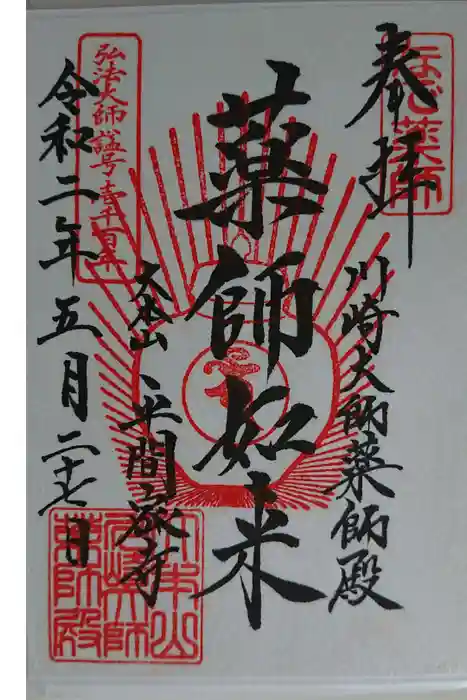 奉拝
なで薬師
川崎大師薬師殿
薬師如来
大本山 平間寺
弘法大師諡号壱千百年
令和二年五月二十七日
大本山
川崎大師
薬師殿